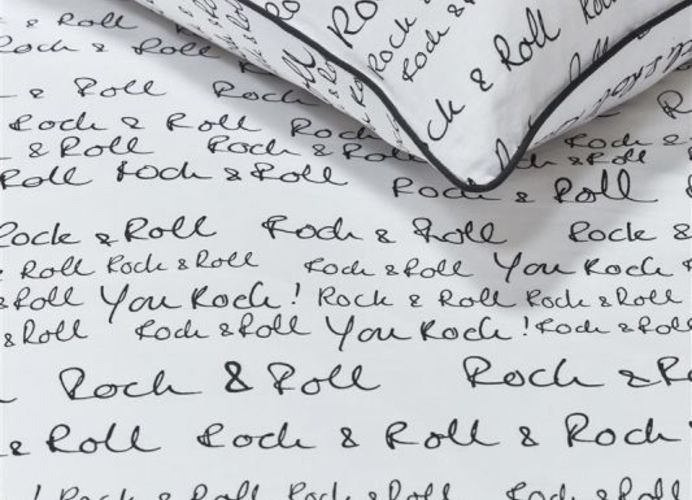 & Roll
Rock & Roll
& Roll Rock
Rock & Roll Rock
& Roll Rock & Roll Rock &
Roll Rock & Roll Rock & Roll
Rock & Roll Rock & Roll Rock &
& Roll Rock & Roll Rock & Roll You Rock
& Roll You Rock! Rock & Roll Rock & Roll
& Roll Rock & Roll You Rock! Rock & Roll
Rock & Roll Rock & R
& Roll Rock & Roll & Rock
! Rock & Roll Rock & Roll Rock & Roll